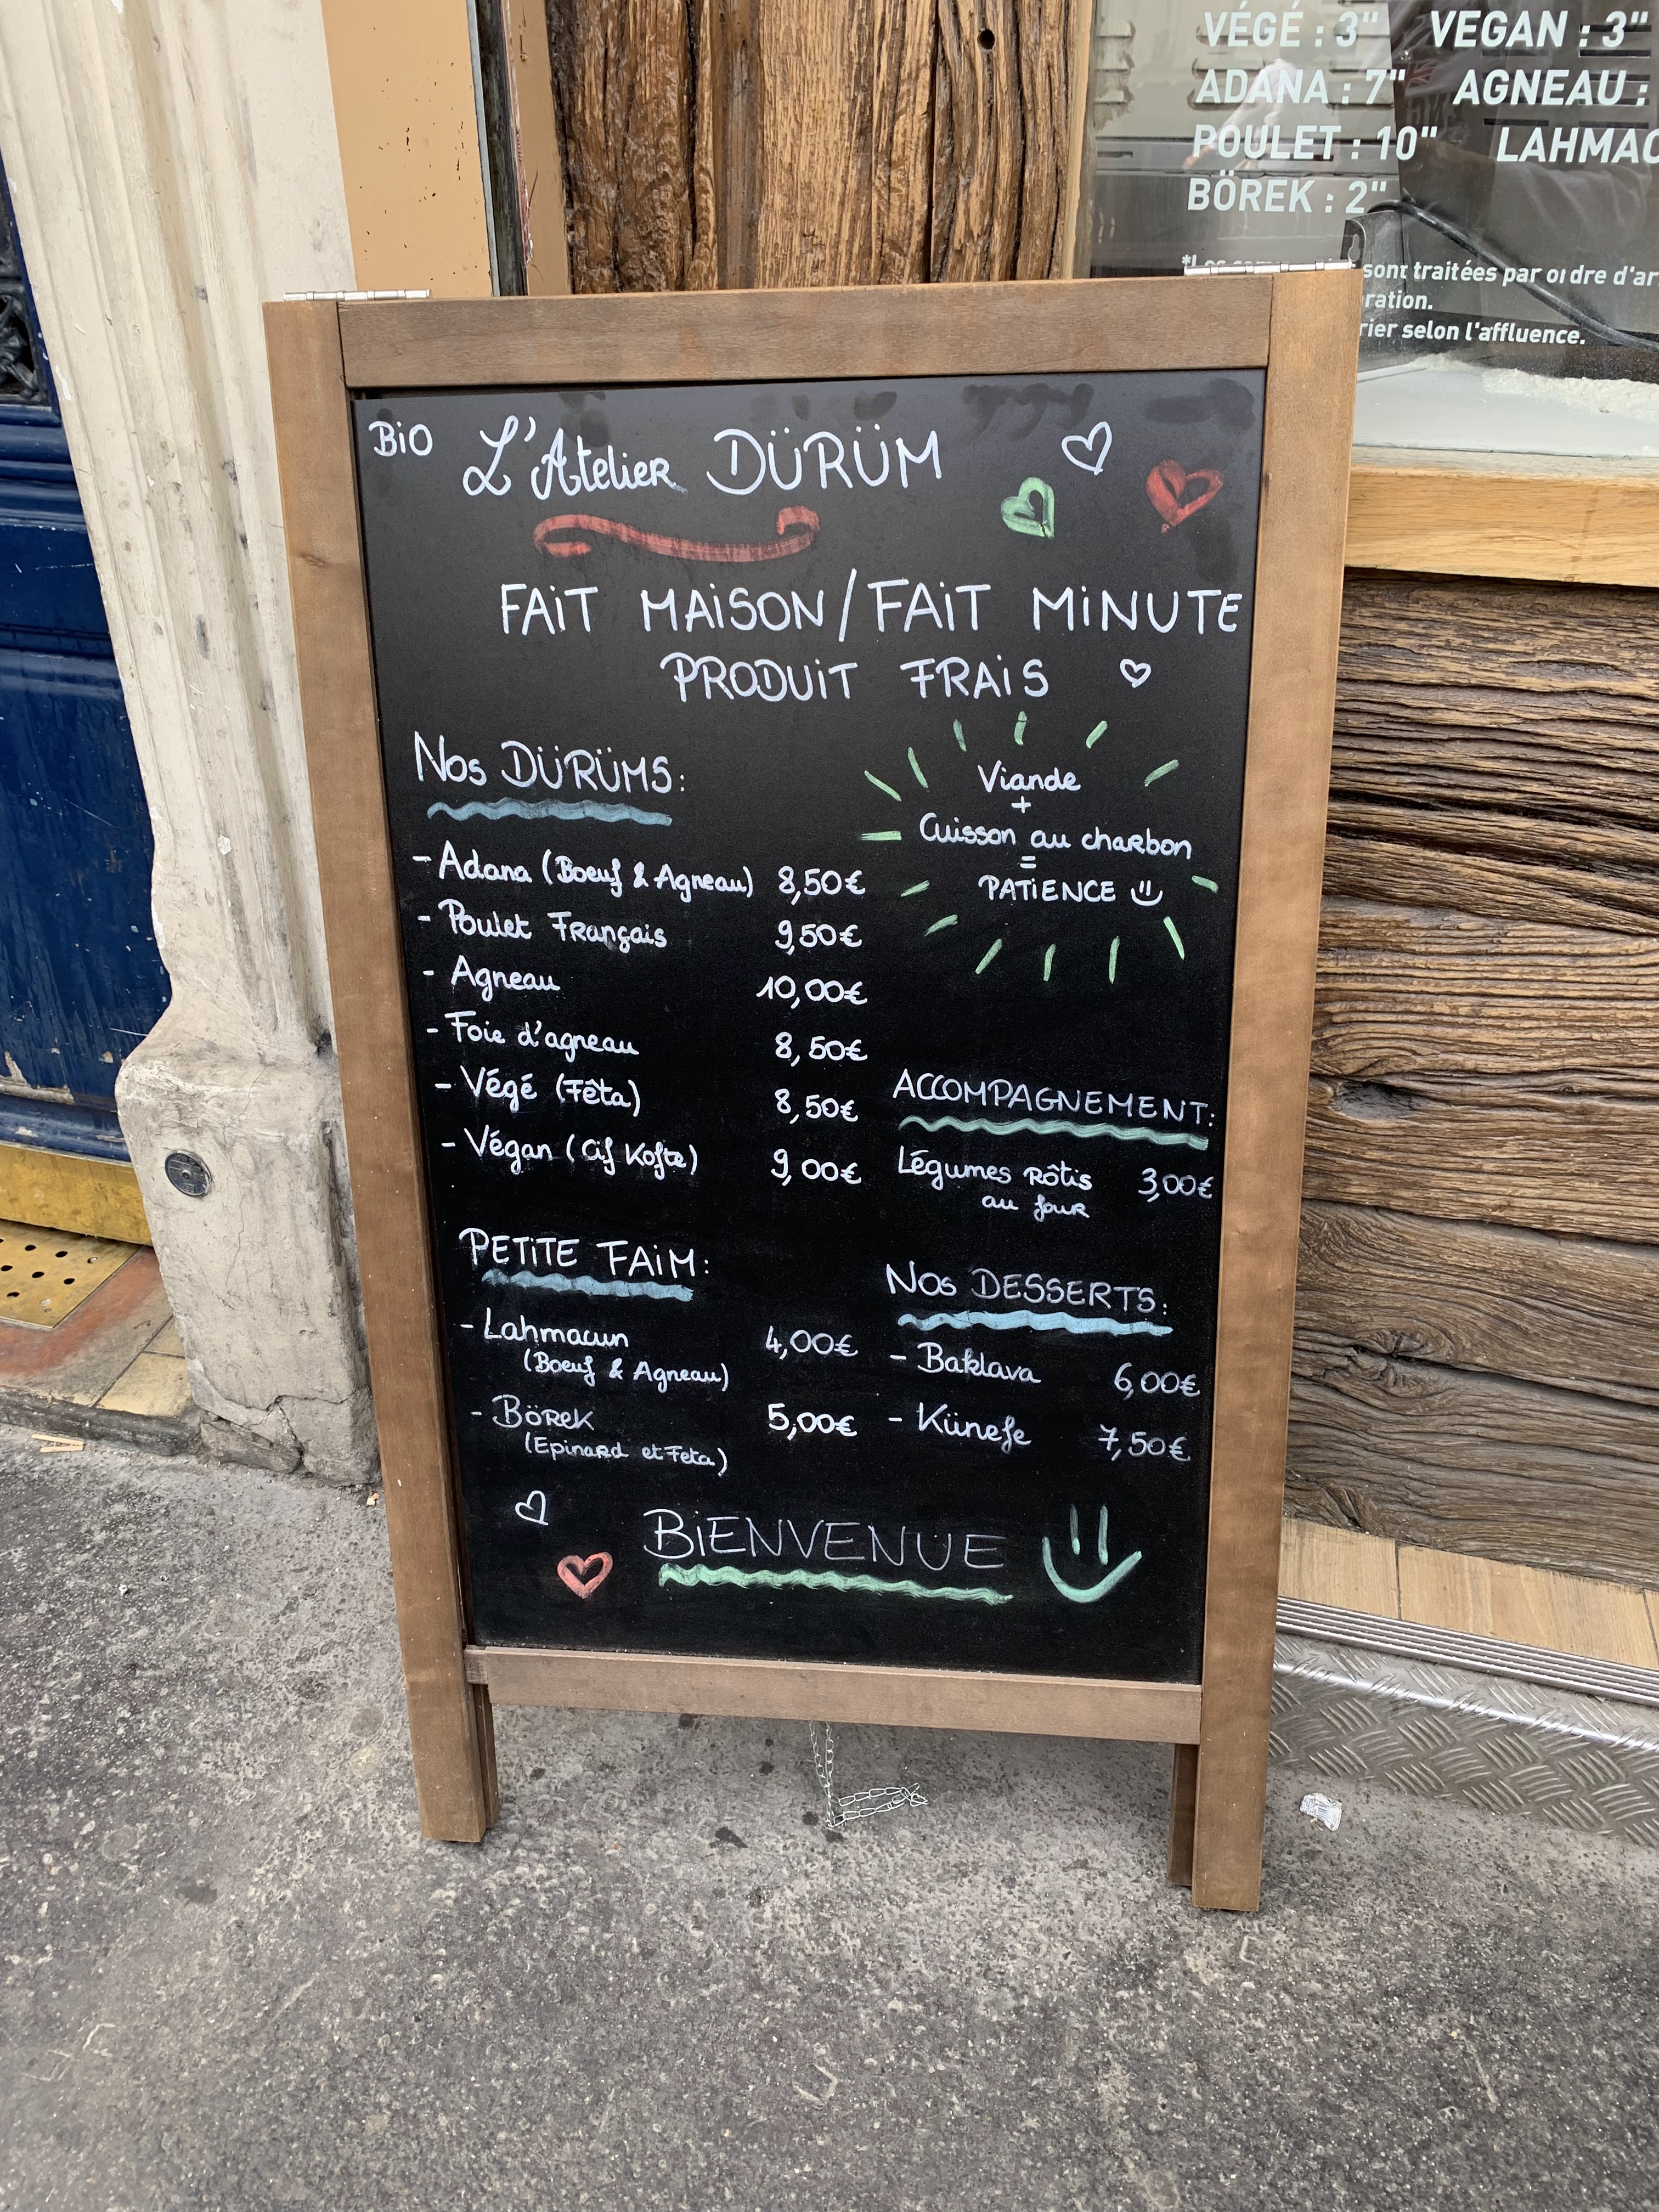 VÉGÉ : 3" VEGAN : 3"
ADANA : 7" AGNEAU :
POULET : 10" LAHMAC
BÖREK : 2"
sont traitées par ordre d'ar
ration.
rier selon l'affluence.
BiO L'Atelier DÜRÜM
FAiT MAiSON/FAiT MiNUTE
PRODUiT FRAiS
Nos DÜRÜMS:
- Adana (Boeuf & Agneau) 8,50€
- Poulet Français 9,50€
- Agneau 10,00€
- Foie d'agneau 8,50€
- Végé (Fêta) 8,50€
- Végan (Cif Kofte) 9,00€
Viande
+
Cuisson au charbon
=
PATiENCE
ACCOMPAGNEMENT:
Légumes rôtis 3,00€
au four
PETiTE FAiM:
- Lahmacun 4,00€
(Boeuf & Agneau)
- Börek 5,00€
(Epinard et Feta)
Nos DESSERTS:
- Baklava 6,00€
- Künefe 7,50€
BiENVENUE